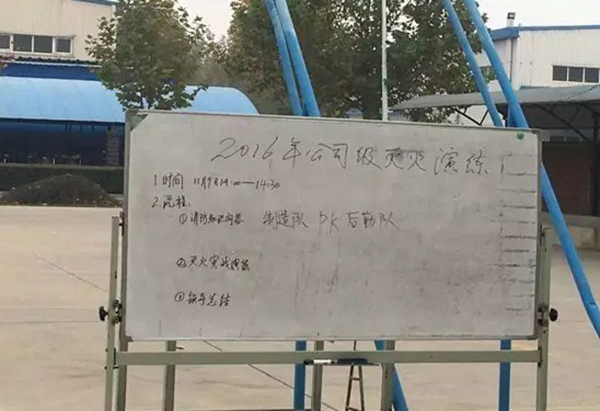 2016年公司级灭火演练
1.时间 11月9日14:00—14:30
2.流程:
①消防知识问答 制造队 PK 后勤队
②灭火实战演练
③领导总结